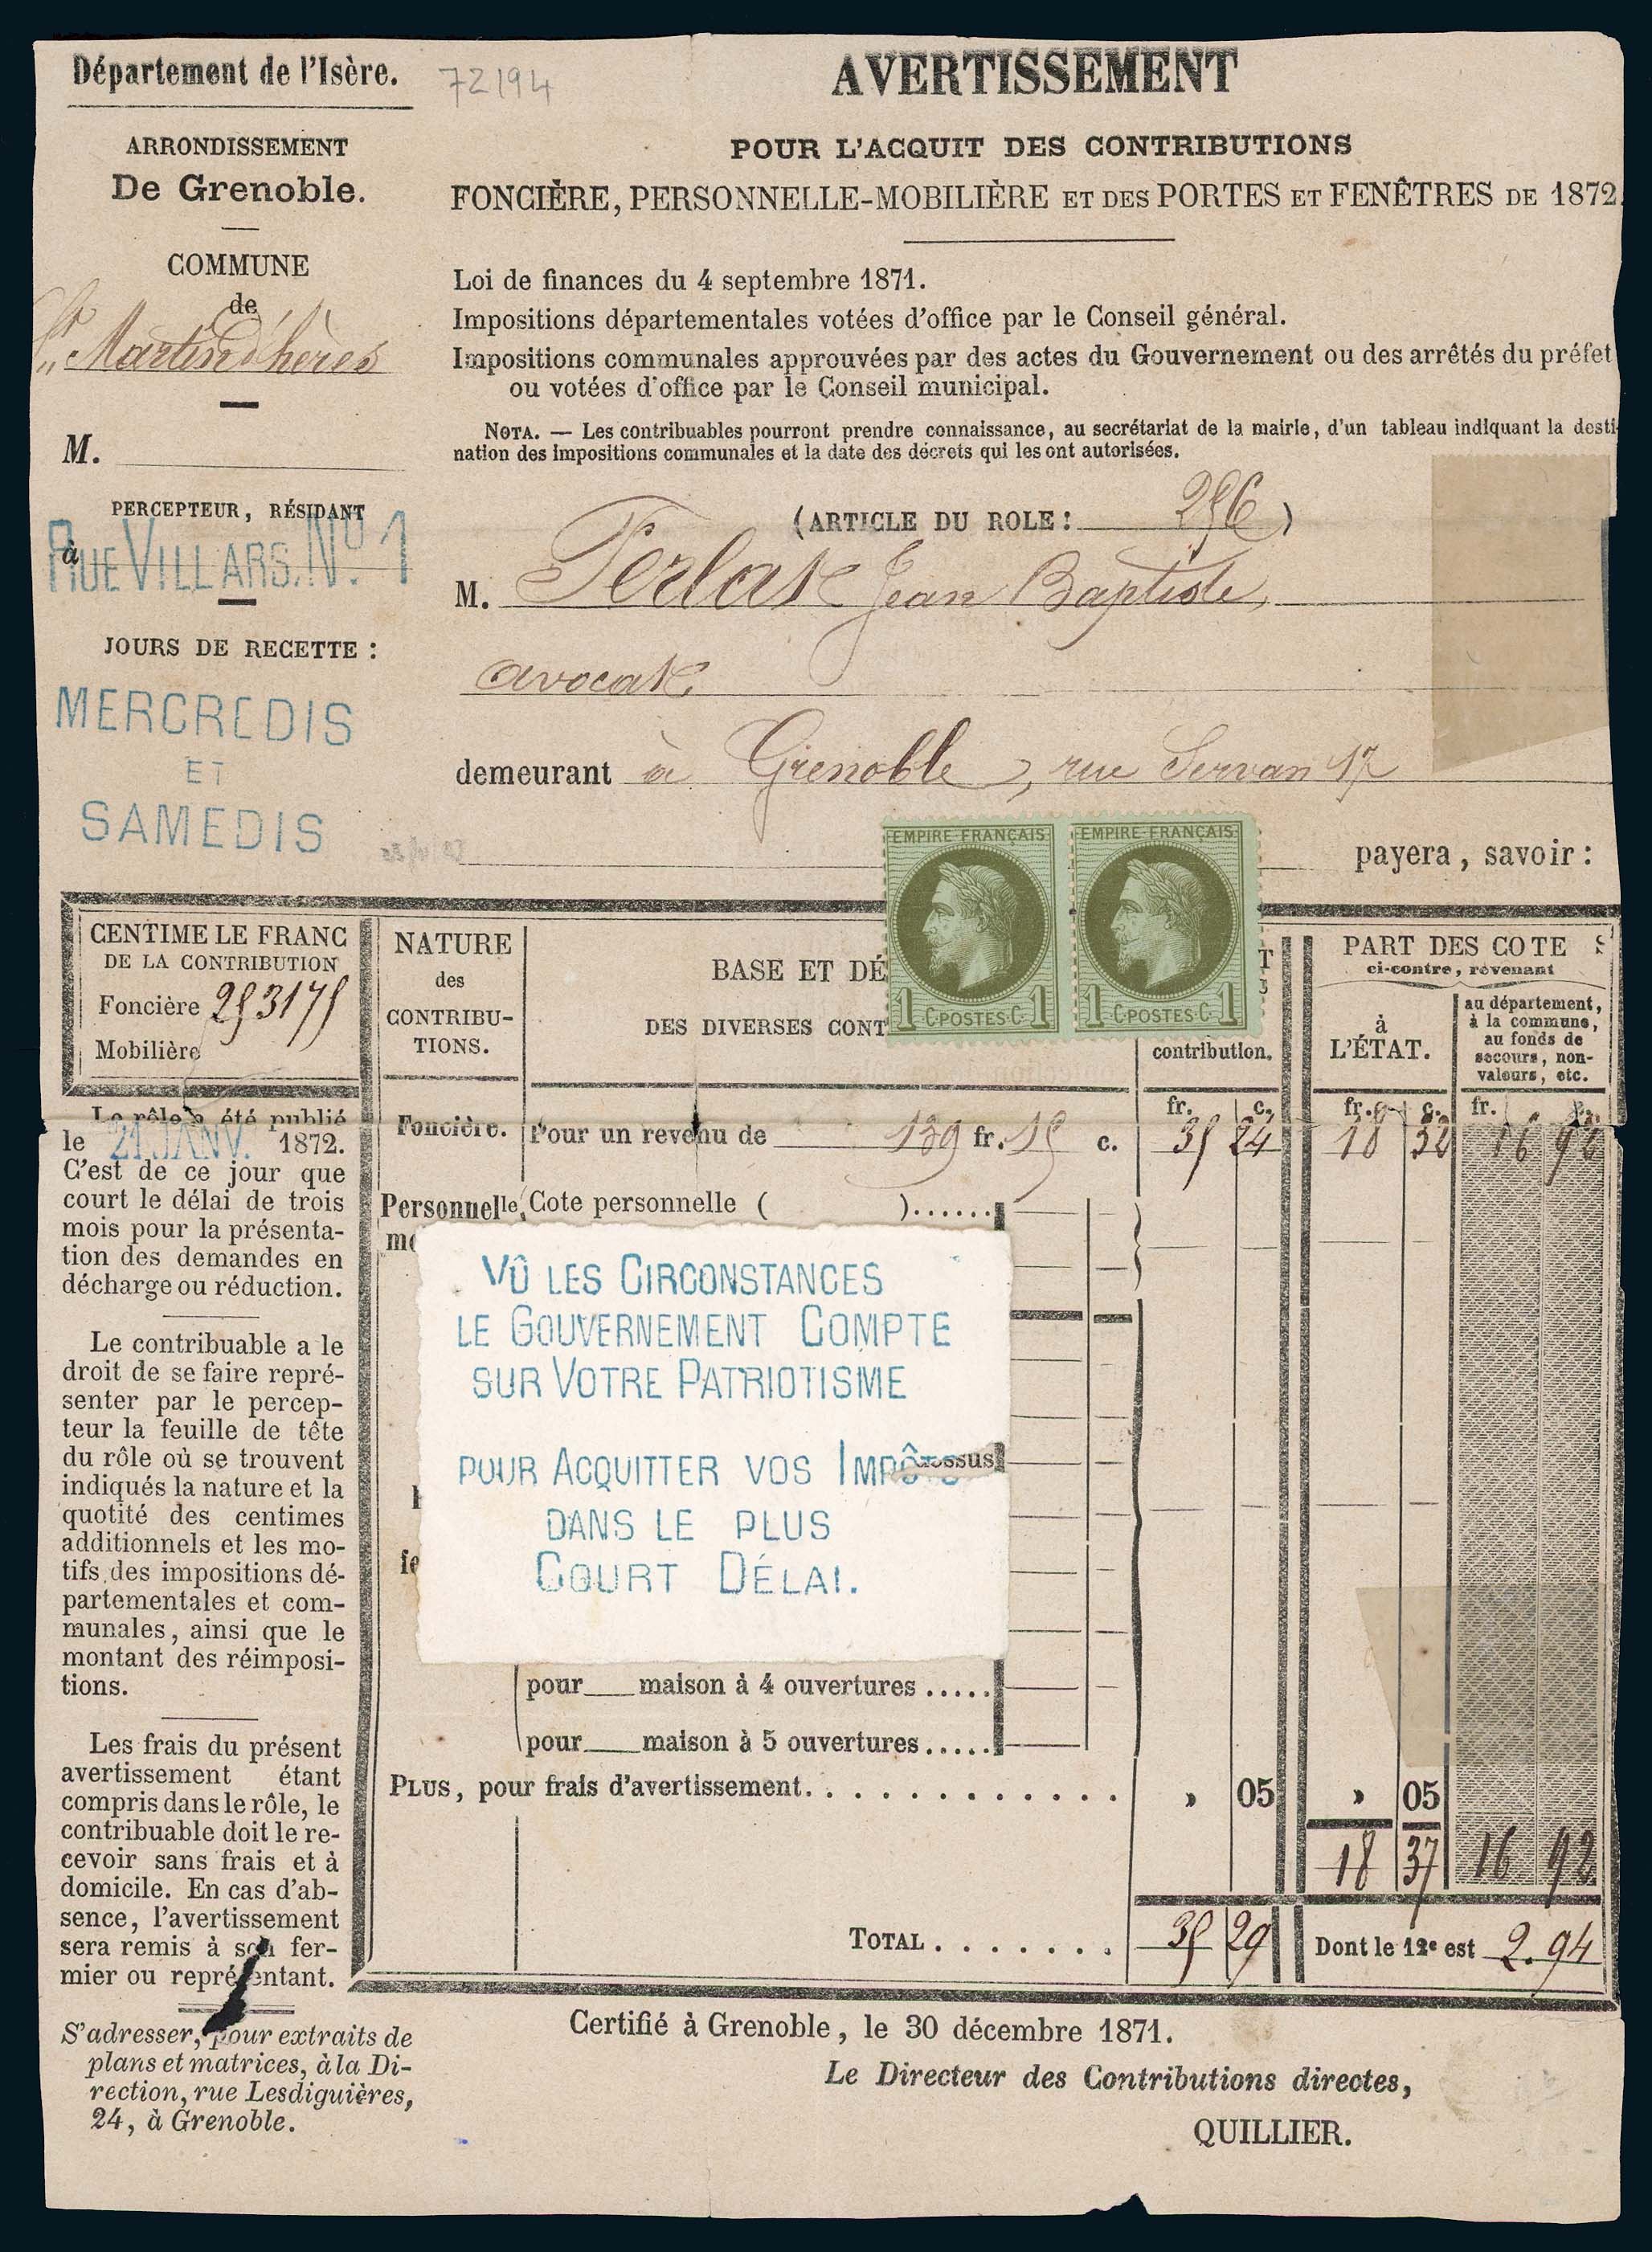 Département de l'Isère.
72194
ARRONDISSEMENT
De Grenoble.
COMMUNE
de
St Martin d'hères
M.
PERCEPTEUR, RÉSIDANT
à
RUE VILLARS. No. 1
JOURS DE RECETTE :
MERCREDIS
ET
SAMEDIS
AVERTISSEMENT
POUR L'ACQUIT DES CONTRIBUTIONS
FONCIÈRE, PERSONNELLE-MOBILIÈRE ET DES PORTES ET FENÊTRES DE 1872.
Loi de finances du 4 septembre 1871.
Impositions départementales votées d'office par le Conseil général.
Impositions communales approuvées par des actes du Gouvernement ou des arrêtés du préfet
ou votées d'office par le Conseil municipal.
NOTA. — Les contribuables pourront prendre connaissance, au secrétariat de la mairie, d'un tableau indiquant la desti-
nation des impositions communales et la date des décrets qui les ont autorisées.
(ARTICLE DU ROLE : 256)
M. Jean Baptiste,
avocat
demeurant à Grenoble, rue Servan 17
payera, savoir :
EMPIRE FRANÇAIS
1 C. POSTES C. 1
EMPIRE FRANÇAIS
1 C. POSTES C. 1
CENTIME LE FRANC
DE LA CONTRIBUTION
Foncière 253175
Mobilière
NATURE
des
CONTRIBU-
TIONS.
BASE ET DÉ
DES DIVERSES CONT
contribution.
PART DES COTE S
ci-contre, revenant
à
L'ÉTAT.
au département,
à la commune,
au fonds de
secours, non-
valeurs, etc.
fr. c. fr. c. fr. c.
Foncière. Pour un revenu de 139 fr. 15 c. 35 24 18 32 16 92
Personnelle Cote personnelle ( )......
mo
VÛ LES CIRCONSTANCES
LE GOUVERNEMENT COMPTE
SUR VOTRE PATRIOTISME
POUR ACQUITTER VOS IMPÔTS
DANS LE PLUS
COURT DÉLAI.
pour maison à 4 ouvertures .....
pour maison à 5 ouvertures .....
PLUS, pour frais d'avertissement. . . . . . . . . . . . . » 05 » 05
18 37 16 92
TOTAL . . . . . . . 35 29 Dont le 12e est 2.94
Le rôle a été publié
le 21 JANV. 1872.
C'est de ce jour que
court le délai de trois
mois pour la présenta-
tion des demandes en
décharge ou réduction.
Le contribuable a le
droit de se faire repré-
senter par le percep-
teur la feuille de tête
du rôle où se trouvent
indiqués la nature et la
quotité des centimes
additionnels et les mo-
tifs des impositions dé-
partementales et com-
munales, ainsi que le
montant des réimposi-
tions.
Les frais du présent
avertissement étant
compris dans le rôle, le
contribuable doit le re-
cevoir sans frais et à
domicile. En cas d'ab-
sence, l'avertissement
sera remis à son fer-
mier ou représentant.
S'adresser, pour extraits de
plans et matrices, à la Di-
rection, rue Lesdiguières,
24, à Grenoble.
Certifié à Grenoble, le 30 décembre 1871.
Le Directeur des Contributions directes,
QUILLIER.